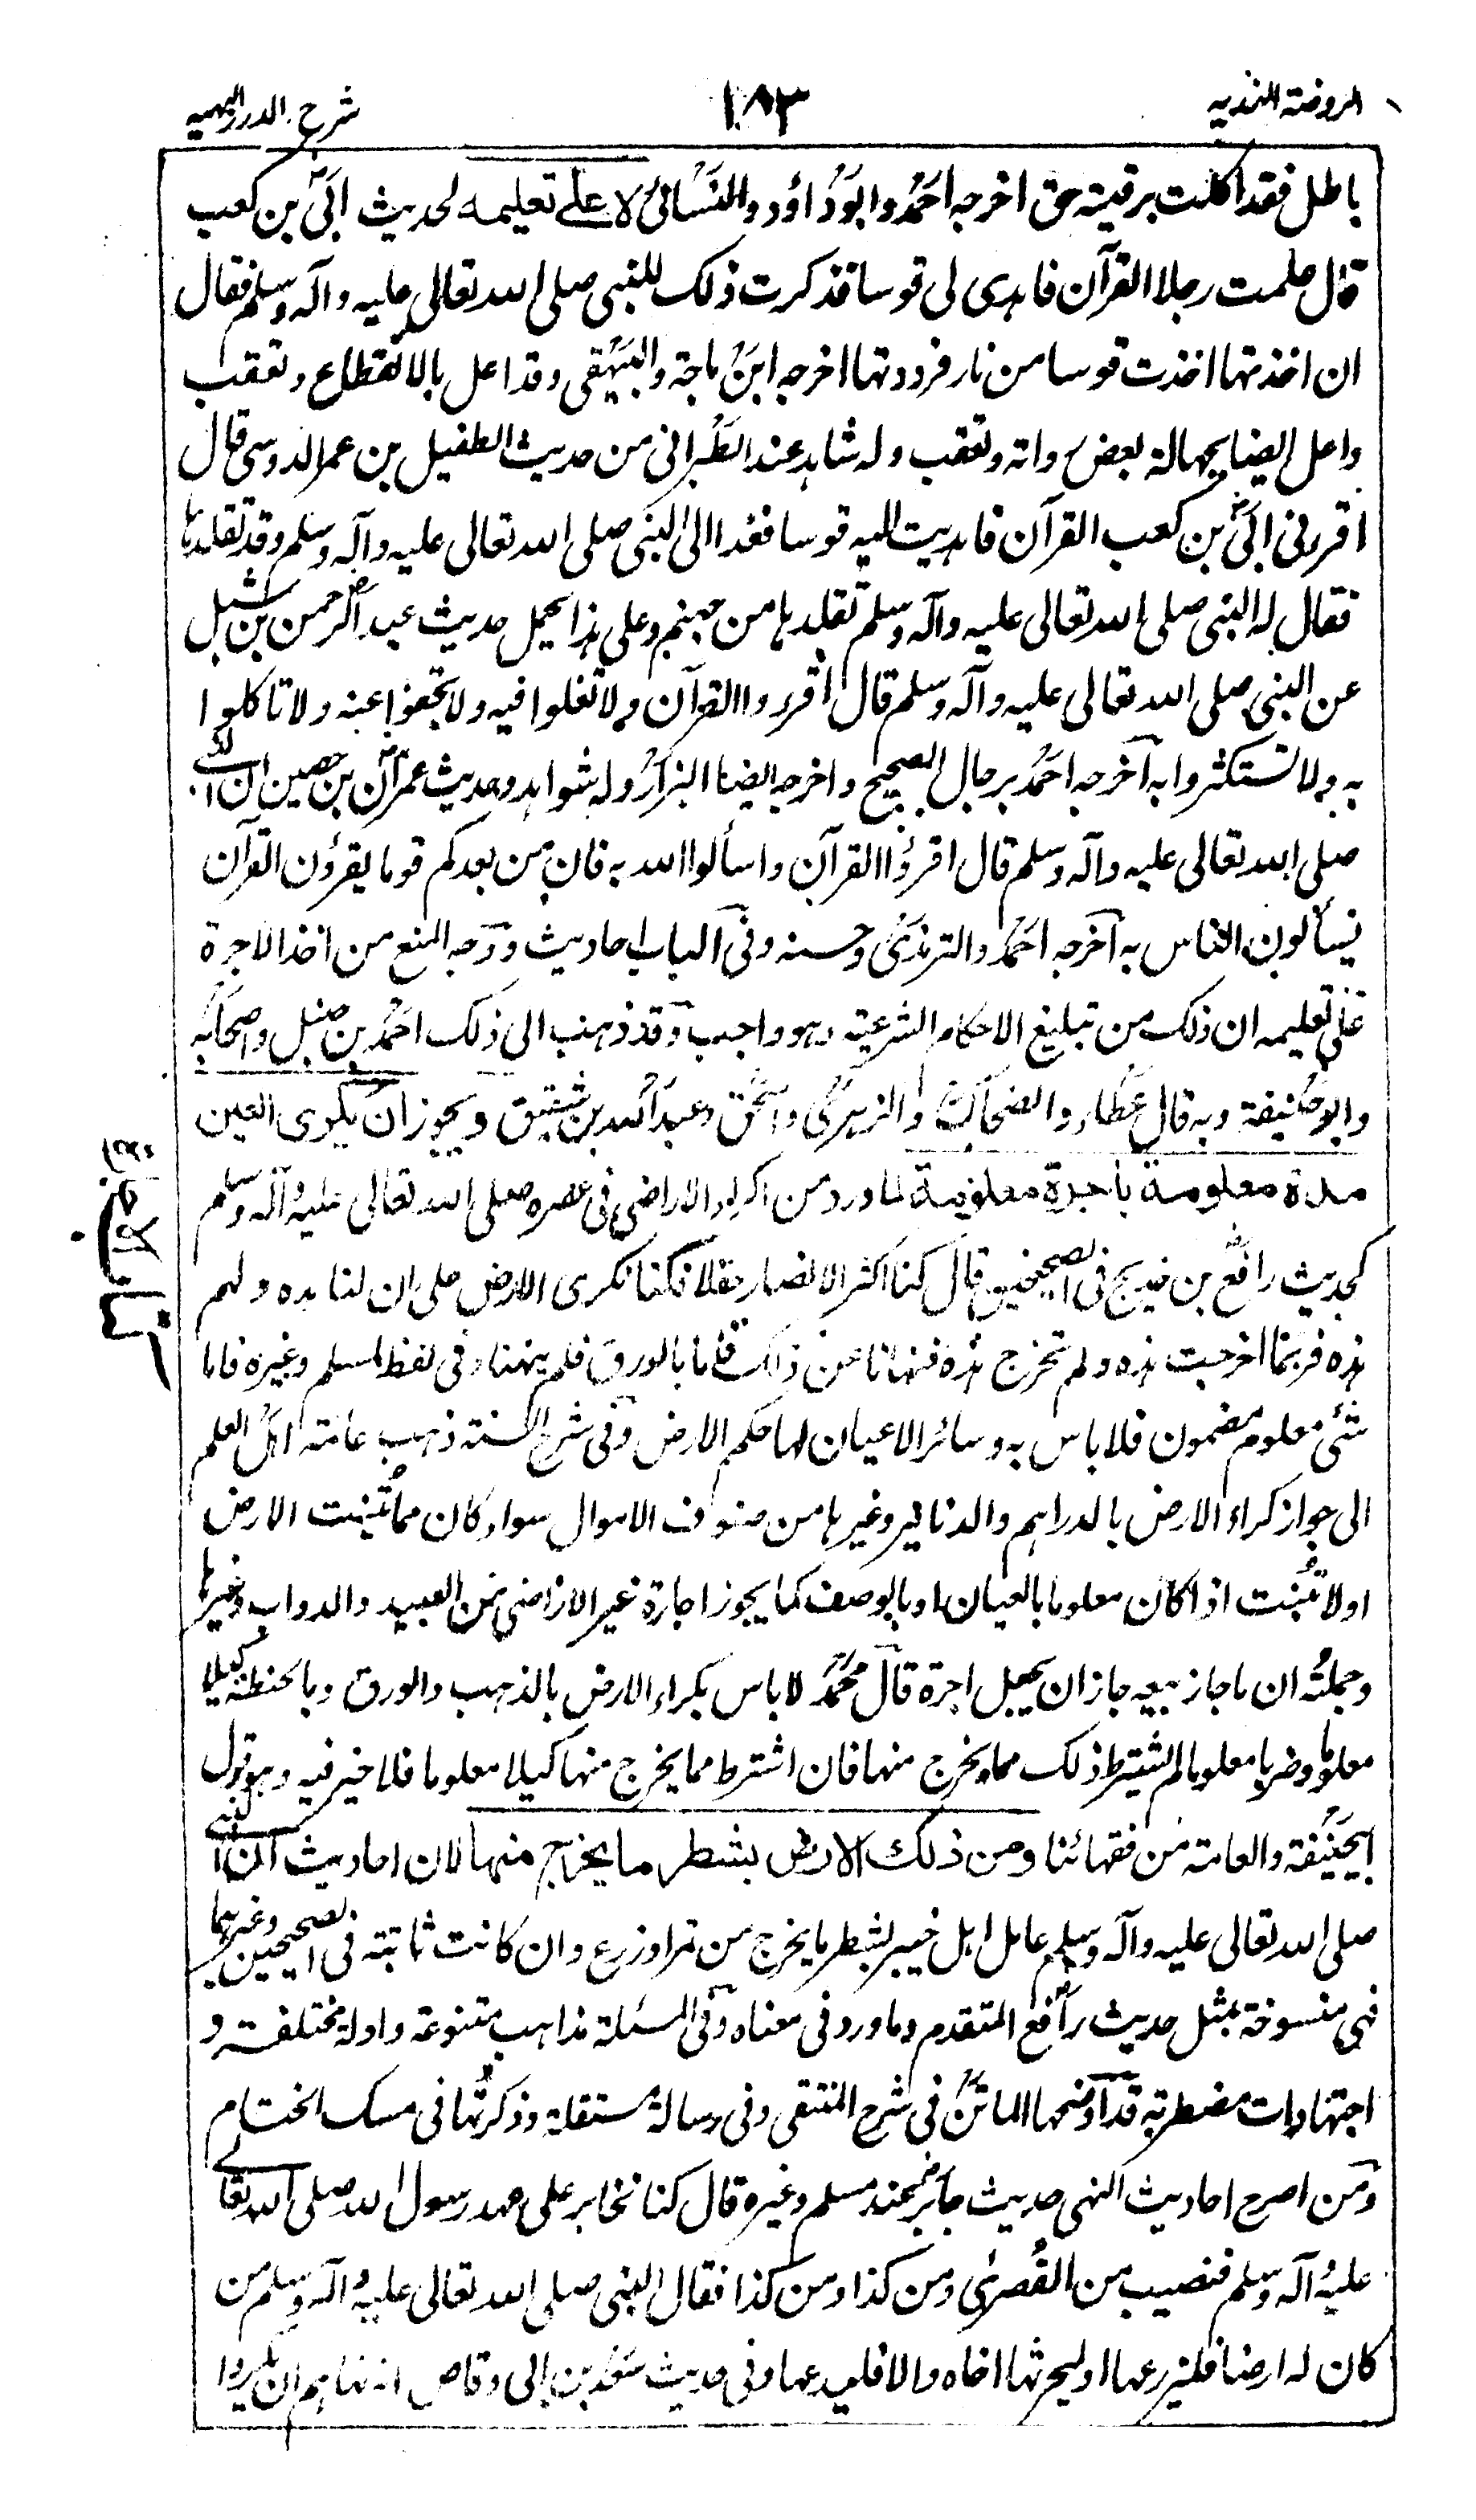 الروضة الندية
١٨٣
شرح الدرر البهية
باطل فقد اكلت برقية حق اخرجه احمد وابوداؤد والنسائى لا على تعليمه لحديث ابى بن كعب
قال علمت رجلا القرآن فاهدى لى قوسا فذكرت ذلك للنبى صلى الله تعالى عليه وآله وسلم فقال
ان اخذتها اخذت قوسا من نار فرددتها اخرجه ابن ماجة والبيهقى وقد اعل بالانقطاع وتعقب
واعل ايضا بجهالة بعض رواته وتعقب وله شاهد عند الطبرانى من حديث الطفيل بن عمرو الدوسى قال
اقررنى ابى بن كعب القرآن فاهديت اليه قوسا فغدا الى النبى صلى الله تعالى عليه وآله وسلم وقد تقلدها
فقال له النبى صلى الله تعالى عليه وآله وسلم تقلدها من جهنم وعلى هذا يحمل حديث عبد الرحمن بن شبل
عن النبى صلى الله تعالى عليه وآله وسلم قال اقرروا القرآن ولا تغلوا فيه ولا تجفوا عنه ولا تاكلوا
به ولا تستكثروا به اخرجه احمد برجال الصحيح واخرجه ايضا البزار وله شواهد وحديث عمران بن حصين ان النبى
صلى الله تعالى عليه وآله وسلم قال اقرؤا القرآن واسألوا الله به فان من بعدكم قوما يقرؤن القرآن
يسألون الناس به اخرجه احمد والترمذى وحسنه وفى الباب احاديث ووجه المنع من اخذ الاجرة
على تعليمه ان ذلك من تبليغ الاحكام الشرعية وهو واجب وقد ذهب الى ذلك احمد بن حنبل واصحابه
وابوحنيفة وبه قال عطاء والضحاك والزهرى واسحق وعبد الله بن شقيق ويجوز ان يكرى العين
مدة معلومة باجرة معلومة لما ورد من اكراء الاراضى فى عصره صلى الله تعالى عليه وآله وسلم
كحديث رافع بن خديج فى الصحيحين قال كنا اكثر الانصار حقلا فكنا نكرى الارض على ان لنا هذه ولهم
هذه فربما اخرجت هذه ولم تخرج هذه فنهانا عن ذلك فاما بالورق فلم ينهنا وفى لفظ لمسلم وغيره فاما
شئ معلوم مضمون فلا باس به وسائر الاعيان لها حكم الارض وفى شرح السنة ذهب عامة اهل العلم
الى جواز كراء الارض بالدراهم والدنانير وغيرها من صنوف الاموال سواء كان مما تنبت الارض
اولا تنبت اذا كان معلوما بالعيان او بالوصف كما يجوز اجارة غير الاراضى من العبيد والدواب وغيرها
وجملته ان ما جاز بيعه جاز ان يجعل اجرة قال محمد لا باس بكراء الارض بالذهب والورق وبالحنطة كيلا
معلوما وضربا معلوما لم يشترط ذلك مما يخرج منها فان اشترط مما يخرج منها كيلا معلوما فلا خير فيه وهو قول
ابيحنيفة والعامة من فقهائنا ومن ذلك الارض بشطر ما يخرج منها لان احاديث ان النبى
صلى الله تعالى عليه وآله وسلم عامل اهل خيبر بشطر ما يخرج من ثمر او زرع وان كانت ثابتة فى الصحيحين وغيرهما
فهى منسوخة بمثل حديث رافع المتقدم وما ورد فى معناه وفى المسئلة مذاهب متنوعة وادلة مختلفة و
اجتهادات مضطربة قد اوضحها الماتن فى شرح المنتقى وفى رسالة مستقلة وذكرتها فى مسك الختام
ومن اصرح احاديث النهى حديث جابر عند مسلم وغيره قال كنا نخابر على عهد رسول الله صلى الله تعالى
عليه وآله وسلم فنصيب من القصرى ومن كذا ومن كذا فقال النبى صلى الله تعالى عليه وآله وسلم من
كان له ارضا فليزرعها او ليحرثها اخاه والا فليدعها وفى حديث سعد بن ابى وقاص انه نهاهم ان يكروا